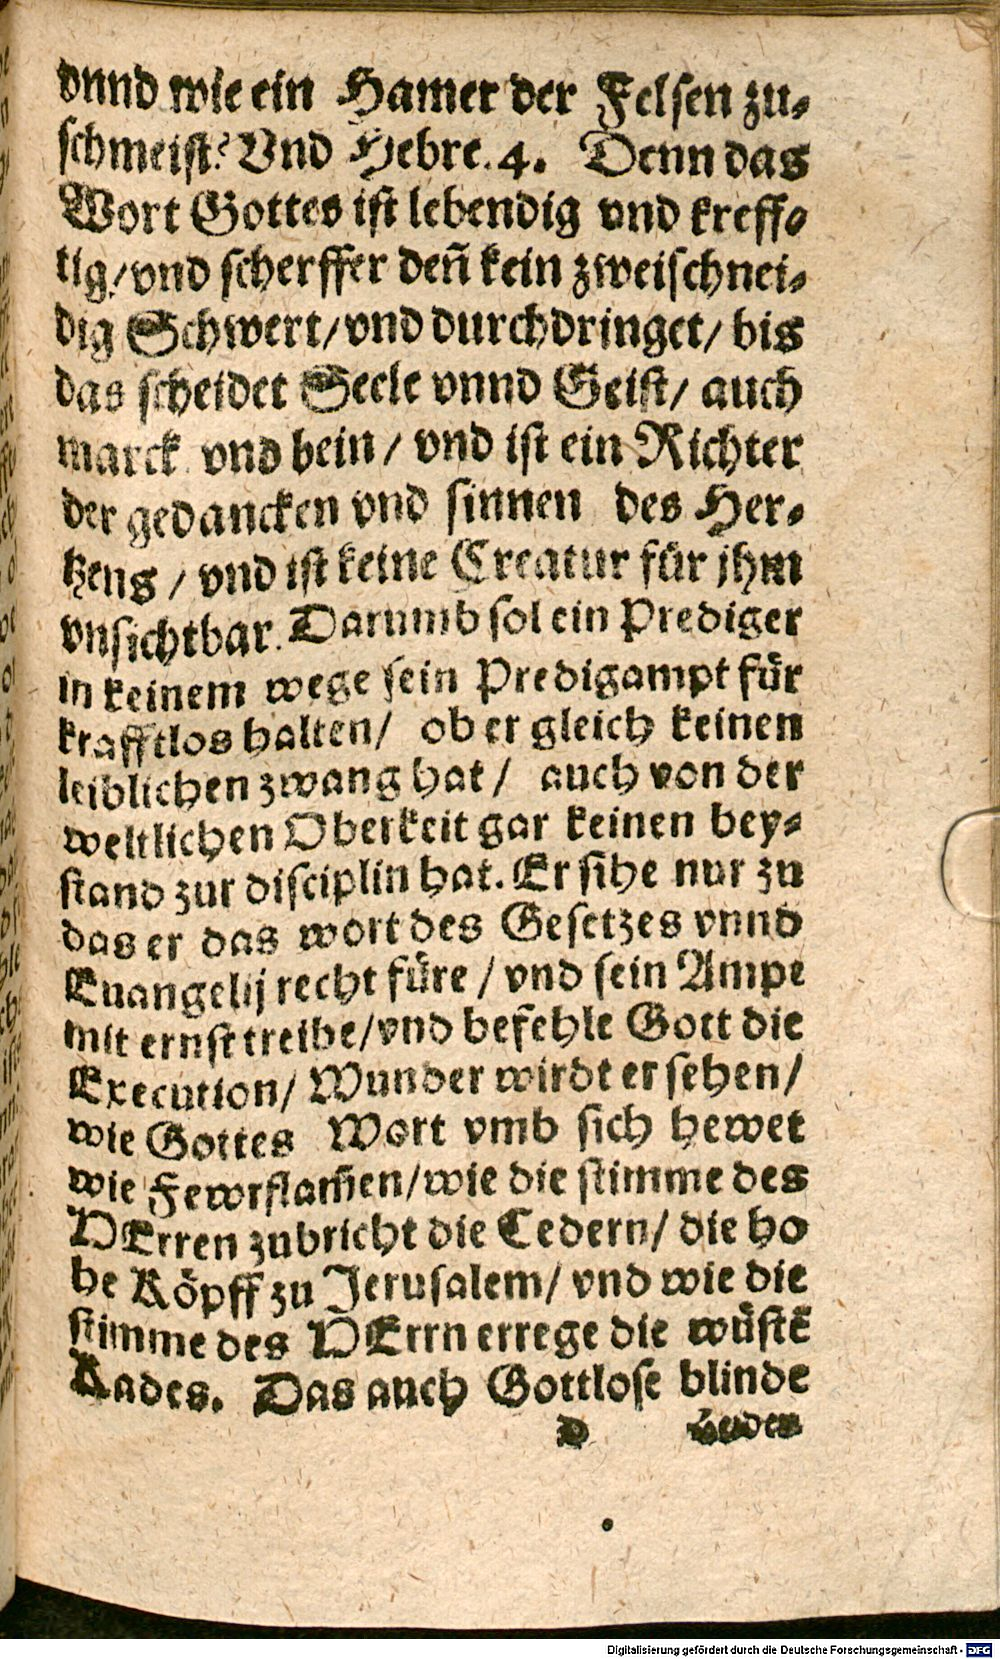 vnnd wie ein Hamer der Felsen zu⸗
schmeist? Vnd Hebre. 4. Denn das
Wort Gottes ist lebendig vnd kreff⸗
tig/ vnd scherffer deñ kein zweischnei⸗
dig Schwert/ vnd durchdringet/ bis
das scheidet Seele vnnd Geist/ auch
marck vnd bein/ vnd ist ein Richter
der gedancken vnd sinnen des Her⸗
tzens/ vnd ist keine Creatur für jhm
vnsichtbar. Darumb sol ein Prediger
in keinem wege sein Predigampt für
krafftlos halten/ ob er gleich keinen
leiblichen zwang hat/ auch von der
weltlichen Oberkeit gar keinen bey⸗
stand zur disciplin hat. Er sihe nur zu
das er das wort des Gesetzes vnnd
Euangelij recht füre/ vnd sein Ampt
mit ernst treibe/ vnd befehle Gott die
Execution/ Wunder wirdt er sehen/
wie Gottes Wort vmb sich hewet
wie Fewrflam̃en/ wie die stimme des
HErren zubricht die Cedern/ die ho
he Köpff zu Jerusalem/ vnd wie die
stimme des HErrn errege die wüstẽ
Kades. Das auch Gottlose blinde
D Heiden
Digitalisierung gefördert durch die Deutsche Forschungsgemeinschaft - DFG